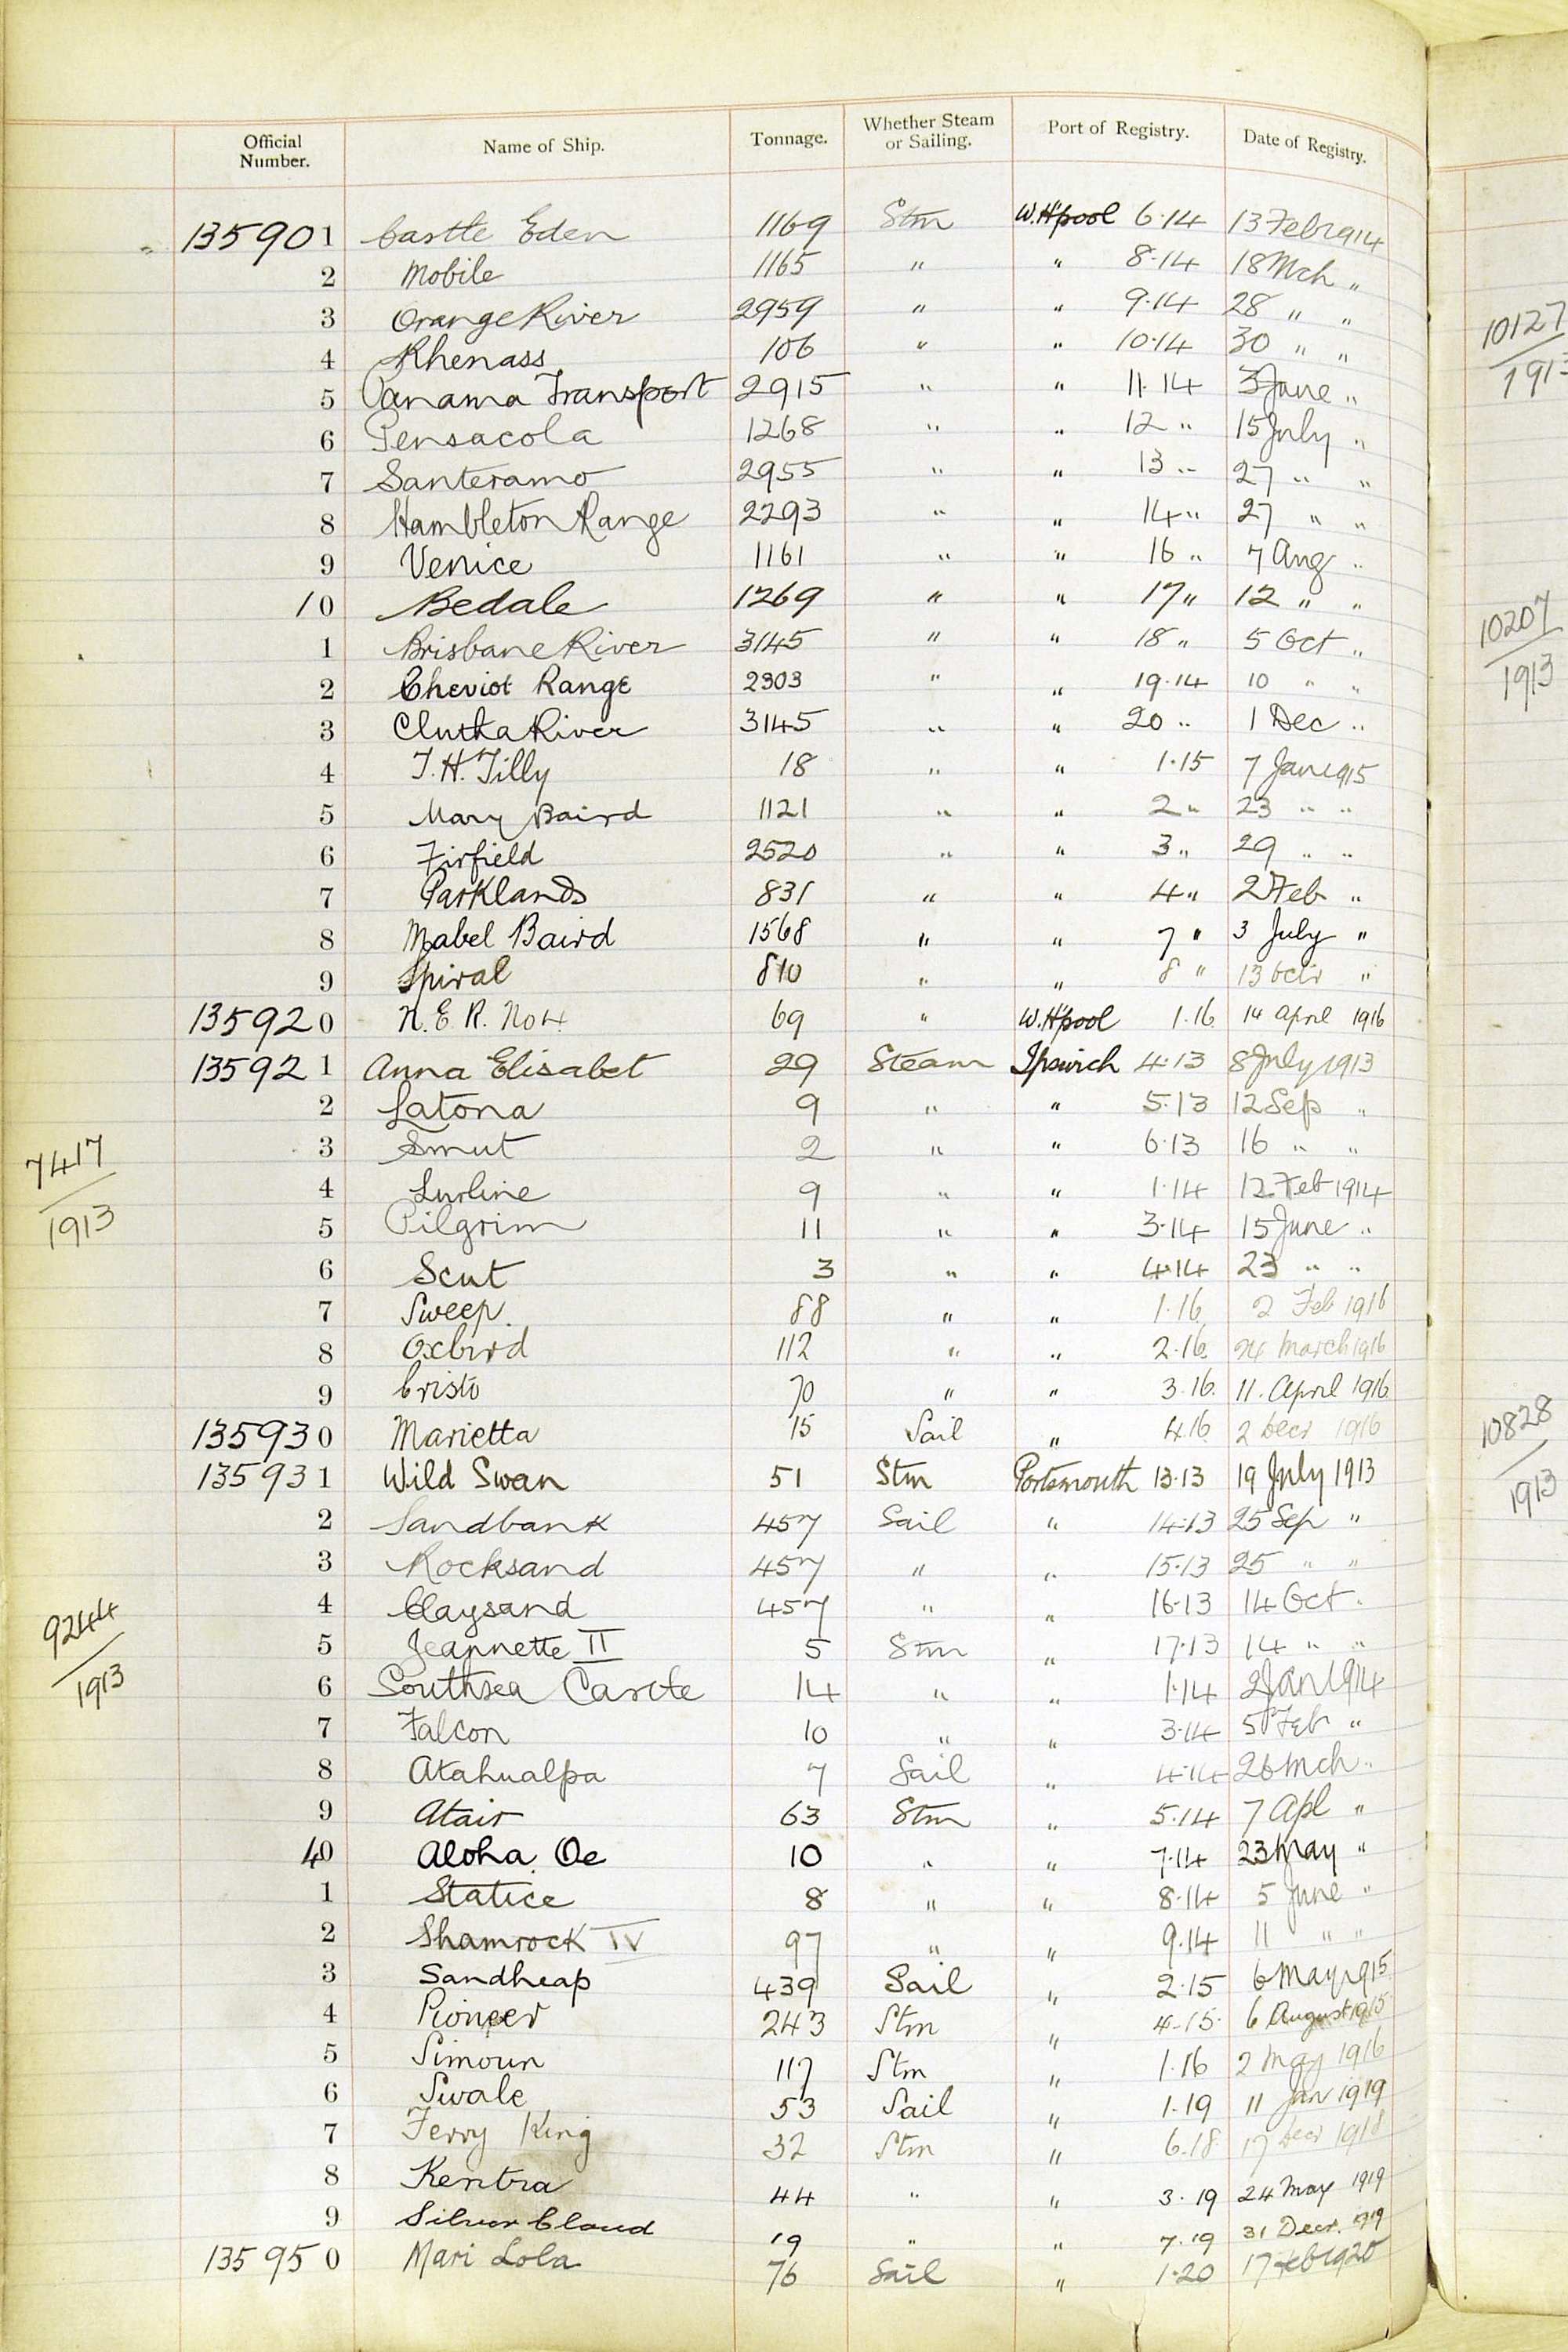 Official Number. Name of Ship. Tonnage. Whether Steam or Sailing. Port of Registry. Date of Registry.
135901 Castle Eden 1169 Stm W.H'pool 6.14 13 Feb 1914
2 Mobile 1165 " " 8.14 18 Mch "
3 Orange River 2959 " " 9.14 28 " "
4 Rhenass 106 " " 10.14 30 " "
5 Panama Transport 2915 " " 11.14 3 June "
6 Pensacola 1268 " " 12 " 15 July "
7 Santeramo 2955 " " 13 " 27 " "
8 Hambleton Range 2293 " " 14 " 27 " "
9 Venice 1161 " " 16 " 7 Aug "
10 Bedale 1269 " " 17 " 12 " "
1 Brisbane River 3145 " " 18 " 5 Oct "
2 Cheviot Range 2303 " " 19.14 10 " "
3 Clutha River 3145 " " 20 " 1 Dec "
4 T.H. Tilly 18 " " 1.15 7 Jan 1915
5 Mary Baird 1121 " " 2 " 23 " "
6 Firfield 2520 " " 3 " 29 " "
7 Parklands 831 " " 4 " 2 Feb "
8 Mabel Baird 1568 " " 7 " 3 July "
9 Spiral 810 " " 8 " 13 "
135920 N.E.R. No 4 69 " W.H'pool 1.16 14 April 1916
135921 Anna Elisabet 29 Steam Ipswich 4.13 8 July 1913
2 Latona 9 " " 5.13 12 Sep "
3 Smut 2 " " 6.13 16 " "
4 Lurline 9 " " 1.14 12 Feb 1914
5 Pilgrim 11 " " 3.14 15 June "
6 Scut 3 " " 4.14 23 " "
7 Sweep 88 " " 1.16 2 Feb 1916
8 Oxbird 112 " " 2.16. 24 March 1916
9 Cristo 70 " " 3.16. 11. April 1916
135930 Marietta 15 Sail " 4.16 2 Decr 1916
135931 Wild Swan 51 Stm Portsmouth 13.13 19 July 1913
2 Sandbank 457 Sail " 14.13 25 Sep "
3 Rocksand 457 " " 15.13 25 " "
4 Claysand 457 " " 16.13 14 Oct "
5 Jeannette II 5 Stm " 17.13 14 " "
6 Southsea Castle 14 " " 1.14 2 Jan 1914
7 Falcon 10 " " 3.14 5 Feb "
8 Atahualpa 7 Sail " 4.14 26 Mch "
9 Atair 63 Stm " 5.14 7 Apl "
40 Aloha Oe 10 " " 7.14 23 May "
1 Statice 8 " " 8.14 5 June "
2 Shamrock IV 97 " " 9.14 11 " "
3 Sandheap 439 Sail " 2.15 6 May 1915
4 Pioneer 243 Stm " 4.15. 6 August 1915
5 Simoun 117 Stm " 1.16 2 May 1916
6 Swale 53 Sail " 1.19 11 Jan 1919
7 Ferry King 32 Stm " 6.18 17 Decr 1918
8 Kentra 44 " " 3.19 24 May 1919
9 Silver Cloud 19 " " 7.19 31 Decr. 1919
135950 Mari Lola 76 Sail " 1.20 17 Feb 1920
7417
1913
9244
1913
10127
1913
10207
1913
10828
1913